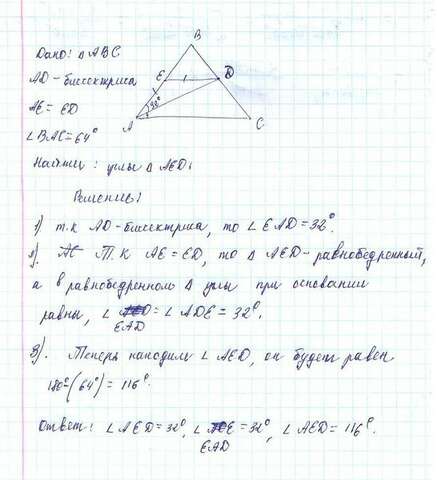 Дано: △ ABC
AD - биссектриса
AE = ED
∠BAC = 64°
Найти: углы △ AED.
B
E
D
32°
A
C
Решение:
1) т.к AD - биссектриса, то ∠ EAD = 32°.
2). Т.К AE = ED, то △ AED - равнобедренный,
а в равнобедренном △ углы при основании
равны, ∠ EAD = ∠ ADE = 32°.
3). Теперь находим ∠ AED, он будет равен
180° (64°) = 116°.
Ответ: ∠ AED = 32°, ∠ EAD = 32°, ∠ AED = 116°.